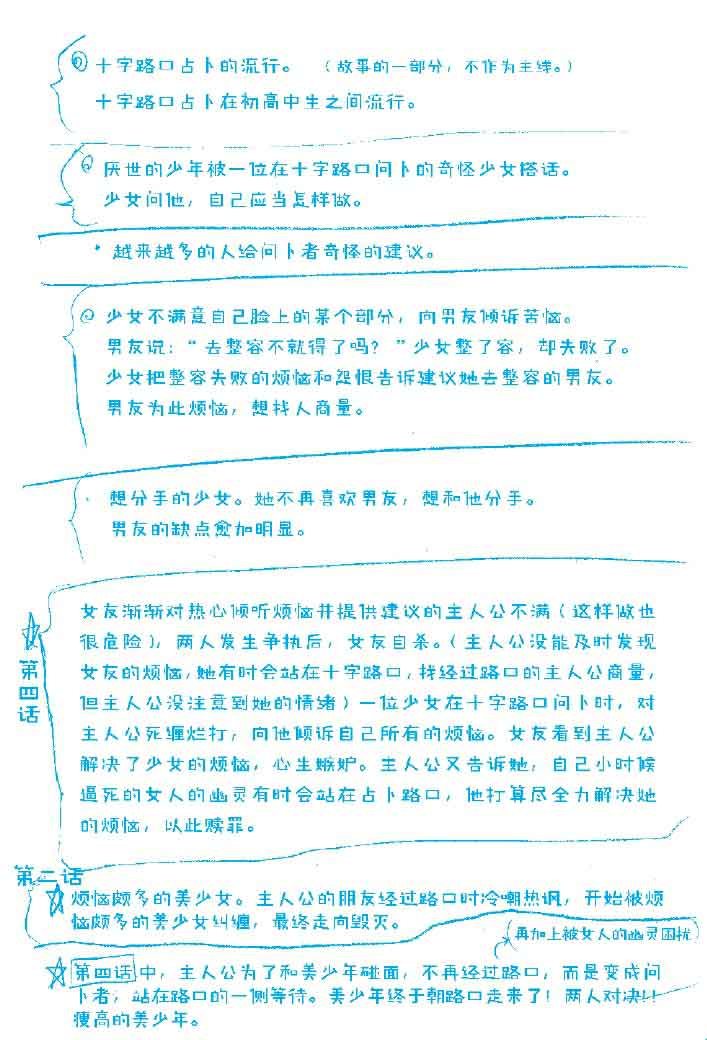 十字路口占卜的流行。（故事的一部分，不作为主线。）
十字路口占卜在初高中生之间流行。
厌世的少年被一位在十字路口问卜的奇怪少女搭话。
少女问他，自己应当怎样做。
越来越多的人给问卜者奇怪的建议。
少女不满意自己脸上的某个部分，向男友倾诉苦恼。
男友说：“去整容不就得了吗？”少女整了容，却失败了。
少女把整容失败的烦恼和怨恨告诉建议她去整容的男友。
男友为此烦恼，想找人商量。
想分手的少女。她不再喜欢男友，想和他分手。
男友的缺点愈加明显。
第四话
女友渐渐对热心倾听烦恼并提供建议的主人公不满（这样做也
很危险），两人发生争执后，女友自杀。（主人公没能及时发现
女友的烦恼，她有时会站在十字路口，找经过路口的主人公商量，
但主人公没注意到她的情绪）一位少女在十字路口问卜时，对
主人公死缠烂打，向他倾诉自己所有的烦恼。女友看到主人公
解决了少女的烦恼，心生嫉妒。主人公又告诉她，自己小时候
逼死的女人的幽灵有时会站在占卜路口，他打算尽全力解决她
的烦恼，以此赎罪。
第二话
烦恼颇多的美少女。主人公的朋友经过路口时冷嘲热讽，开始被烦
恼颇多的美少女纠缠，最终走向毁灭。
再加上被女人的幽灵困扰
第四话中，主人公为了和美少年碰面，不再经过路口，而是变成问
卜者，站在路口的一侧等待。美少年终于朝路口走来了！两人对决！！
瘦高的美少年。